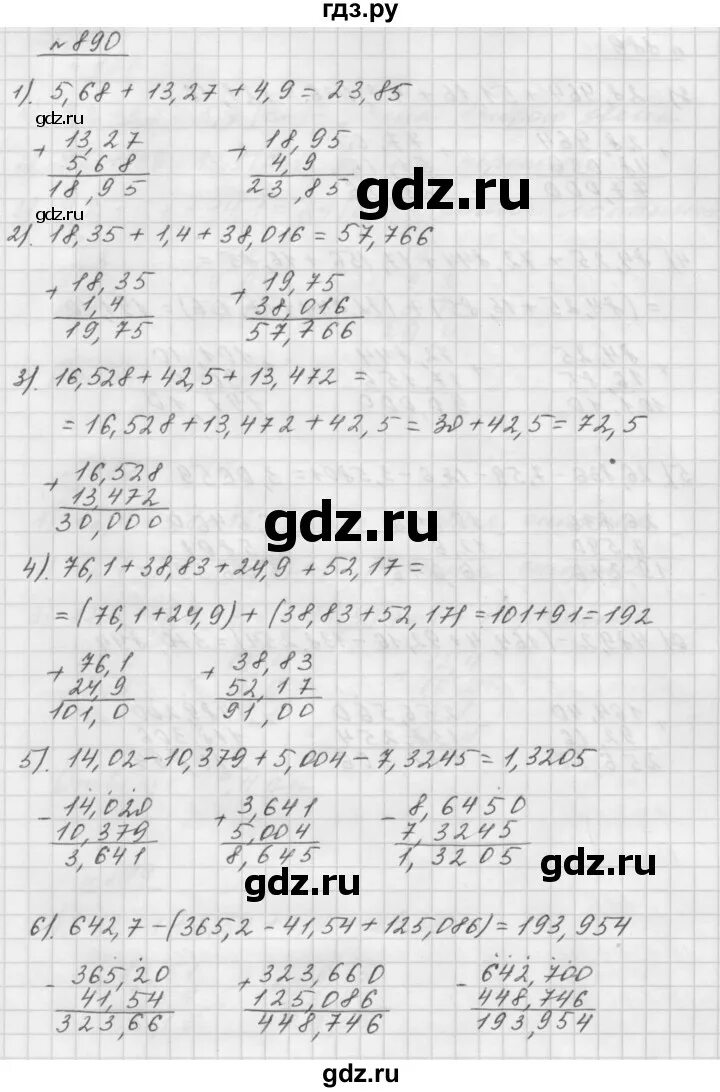 гдз.ру
№ 890
1). 5,68 + 13,27 + 4,9 = 23,85
gdz.ru
+ 13,27 + 18,95
5,68 4,9
18,95 23,85
gdz.ru
gdz.ru
2). 18,35 + 1,4 + 38,016 = 57,766
+ 18,35 + 19,75
1,4 38,016
19,75 57,766
3). 16,528 + 42,5 + 13,472 =
= 16,528 + 13,472 + 42,5 = 30 + 42,5 = 72,5
+ 16,528
13,472
30,000
gdz.ru
4). 76,1 + 38,83 + 24,9 + 52,17 =
= (76,1 + 24,9) + (38,83 + 52,17) = 101 + 91 = 192
+ 76,1 + 38,83
24,9 52,17
101,0 91,00
5). 14,02 - 10,379 + 5,004 - 7,3245 = 1,3205
- 14,020 + 3,641 - 8,6450
10,379 5,004 7,3245
3,641 8,645 1,3205
gdz.ru
6). 642,7 - (365,2 - 41,54 + 125,086) = 193,954
- 365,20 + 323,660 - 642,700
41,54 125,086 448,746
323,66 448,746 193,954
gdz.ru